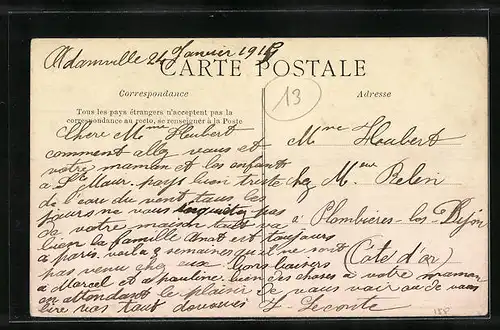 Adamville 24 Janvier 191
CARTE POSTALE
Correspondance
Adresse
13
Tous les pays étrangers n'acceptent pas la
correspondance au recto, se renseigner à la Poste
Chere Mme Heubert
comment allez vous et
votre maman et les enfants
a St Maur. pays bien triste
de l'eau du vent tous les
jours ne vous inquietez pas
de votre maison tout va
bien la famille est toujours
a paris voila 3 semaines qu'il ne sont
pas venu chez eux bons baisers
a Marcel et a pauline bien des choses a votre maman
en attendant le plaisir de vous voir ou de vous
lire vos tout
Mme Houbert
chez Mr Belin
a Plombieres-les-Dijon
(Cote d'or)
Leconte